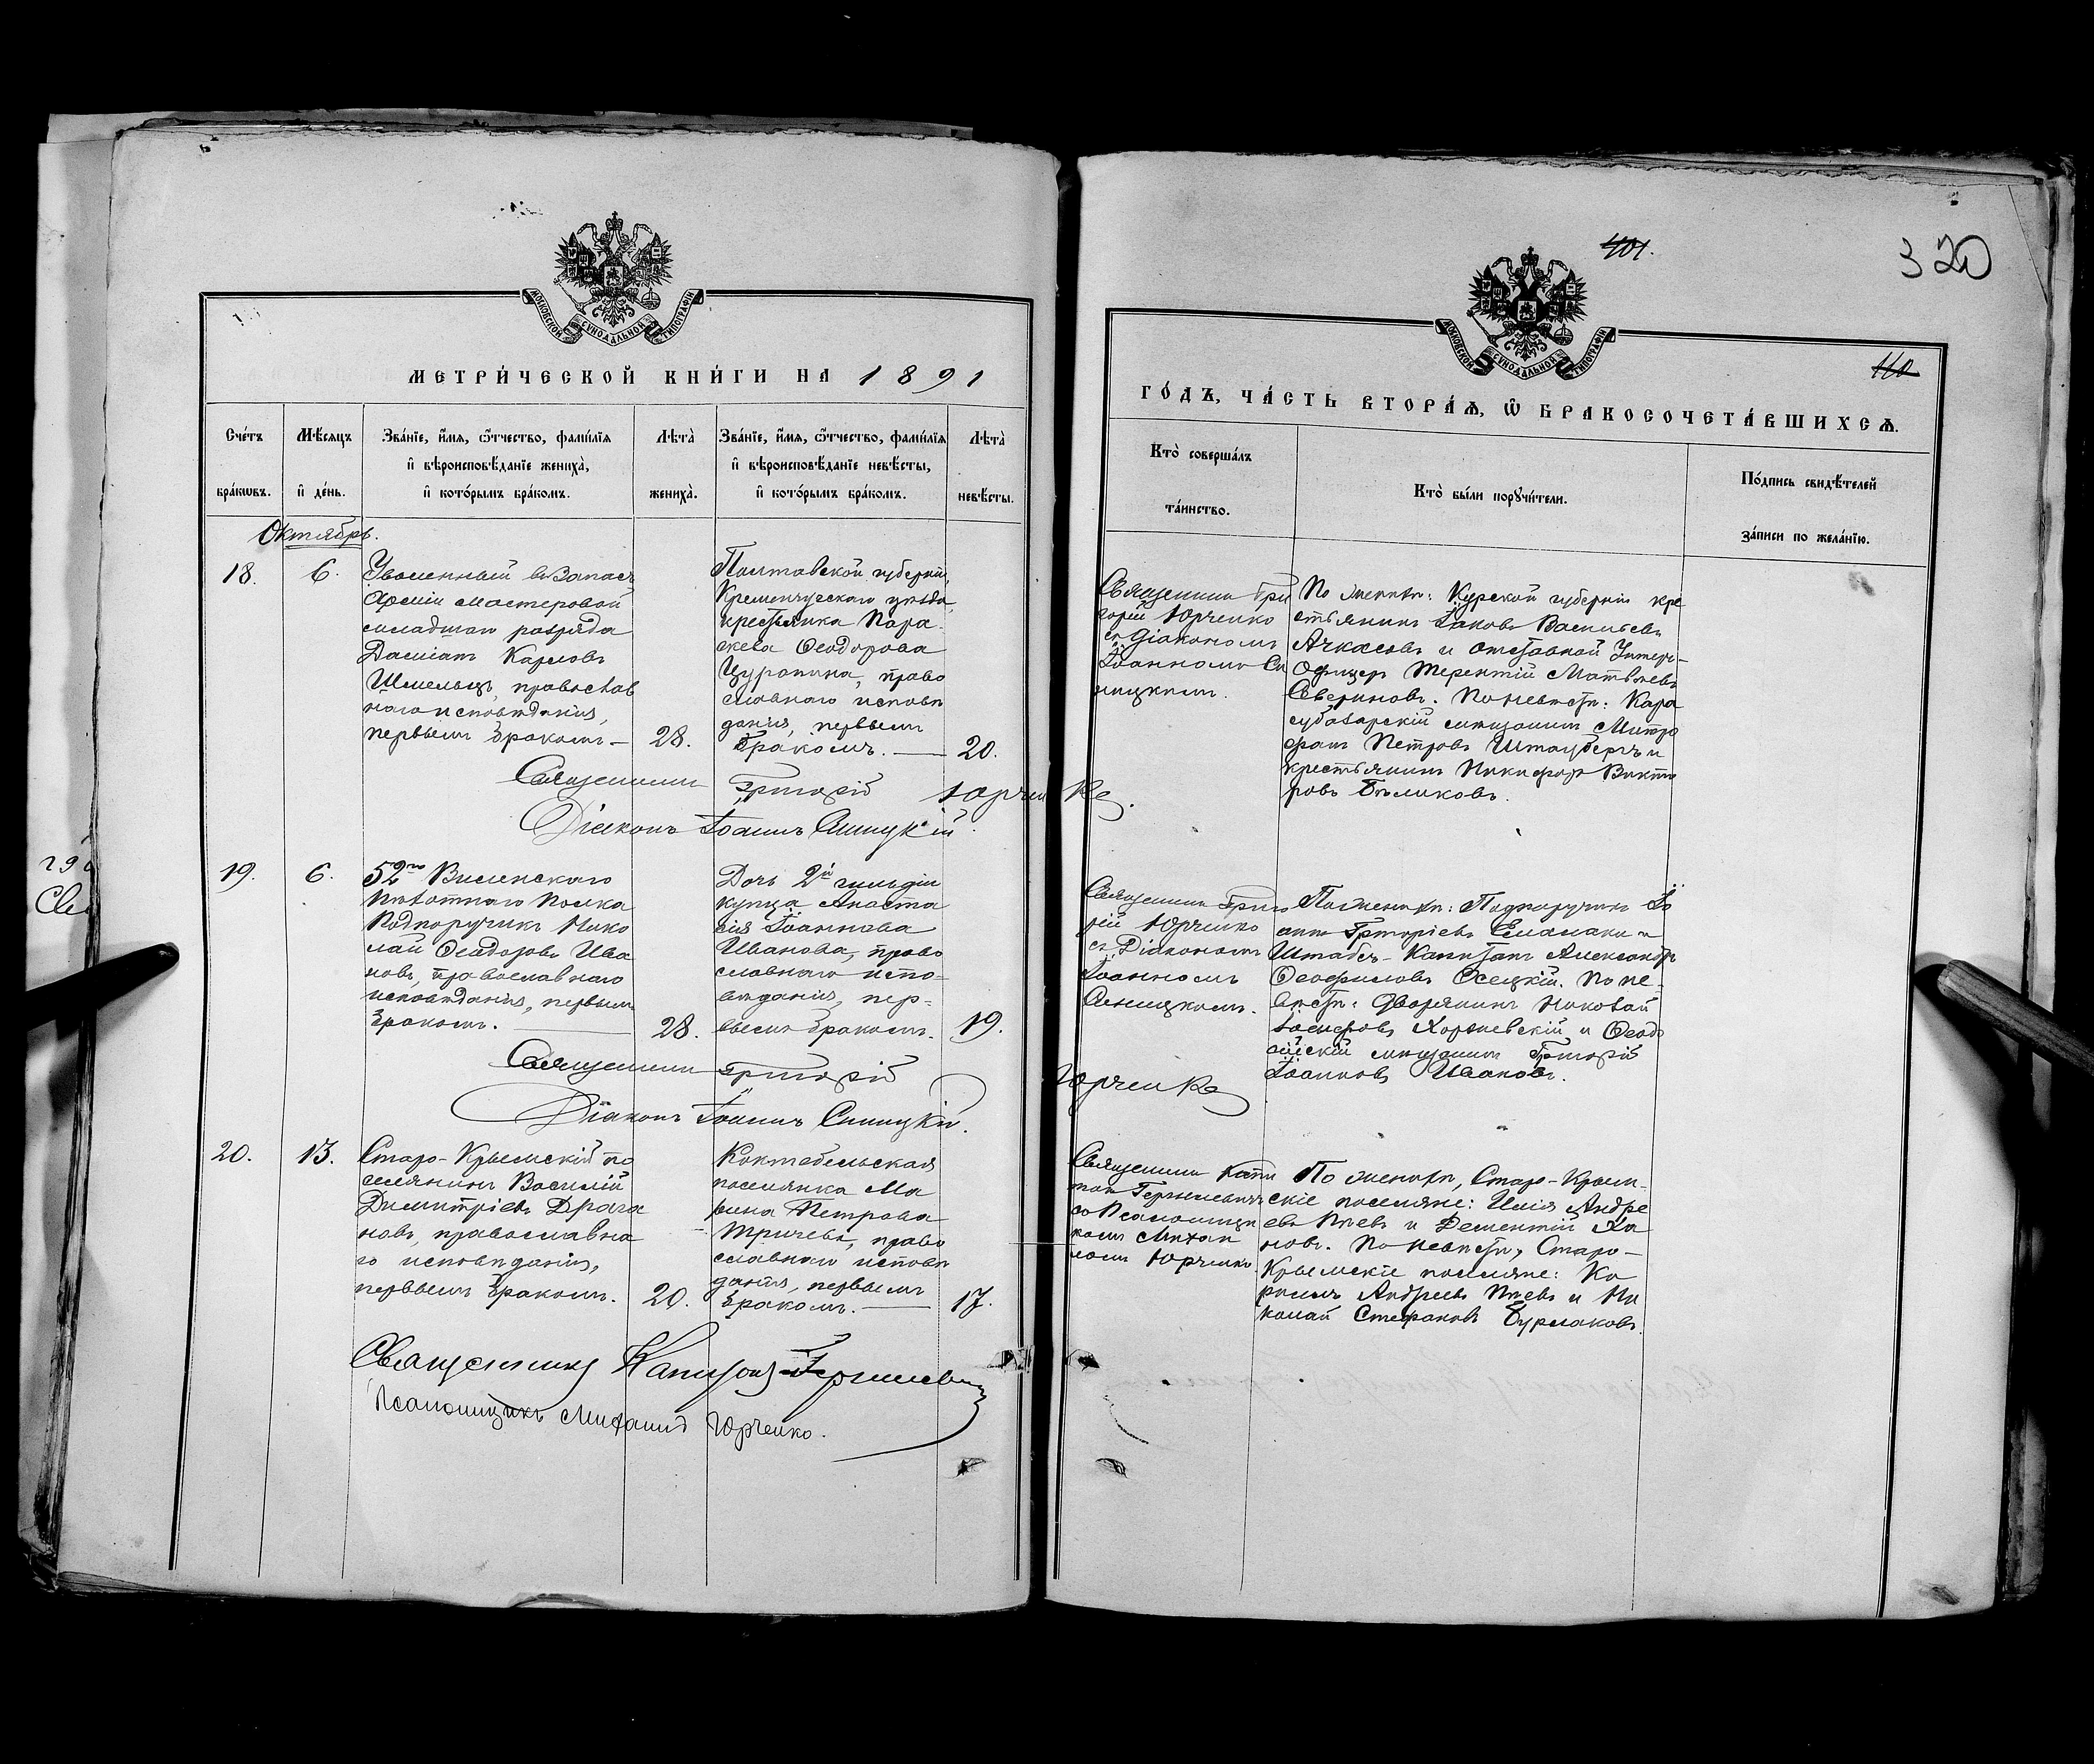 401.
320
МОСКОВСКОЙ СУНОДАЛЬНОЙ ТИПОГРАФІИ
МЕТРИ́ЧЕСКОЙ КНИ́ГИ НА 1891
Сче́тъ бра́кѡвъ.
Мѣ́сяцъ и҆ де́нь.
Зва́нїе, и҆́мя, ѻ҆́тчество, фами́лїя
и҆ вѣроисповѣ́данїе жениха̀,
и҆ кото́рымъ бра́комъ.
Лѣта̀ жениха̀.
Зва́нїе, и҆́мя, ѻ҆́тчество, фами́лїя
и҆ вѣроисповѣ́данїе невѣ́сты,
и҆ кото́рымъ бра́комъ.
Лѣта̀ невѣ́сты.
Октябрь.
18.
6.
Уволенный въ запасъ
Арміи мастеровой
младшаго разряда
Даміанъ Карповъ
Шмельцъ, православ
наго исповѣданія,
первымъ бракомъ —
28.
Полтавской губерніи,
Кременчугскаго уѣзда,
крестьянка Пара
скева Ѳеодорова
Цуропина, право
славнаго исповѣ
данія, первымъ
бракомъ. —
20.
Священникъ Григорій Юрченко.
Діаконъ Іоаннъ Синицкій.
19.
6.
52го Виленскаго
пѣхотнаго полка
Подпоручикъ Нико
лай Ѳеодоровъ Ива
новъ, православнаго
исповѣданія, первымъ
бракомъ. —
28.
Дочь 2й гильдіи
купца Анаста
сія Іоаннова
Иванова, право
славнаго испо-
вѣданія, пер-
вымъ бракомъ.
19.
Священникъ Григорій Юрченко
Діаконъ Іоаннъ Синицкій.
20.
13.
Старо-Крымскій по
селянинъ Василій
Димитріевъ Драга
новъ, православна
го исповѣданія,
первымъ бракомъ.
20.
Коктебельская
поселянка Ма
рина Петрова
Тричева, право
славнаго исповѣ
данія, первымъ
бракомъ. —
17.
Священникъ Капитонъ
Псаломщикъ Михаилъ Юрченко.
МОСКОВСКОЙ СУНОДАЛЬНОЙ ТИПОГРАФІИ
110
ГО́ДЪ, ЧА́СТЬ ВТОРА́Ѧ, Ѡ҆ БРАКОСОЧЕТА́ВШИХСѦ.
Кто̀ соверша́лъ
та́инство.
Кто̀ бы́ли порꙋчи́тели.
По́дпись свидѣ́телей
за́писи по жела́нїю.
Священникъ Гри
горій Юрченко
съ Діакономъ
Іоанномъ Си
ницкимъ.
По женихѣ: Курской губерніи кре
стьянинъ Іаковъ Васильевъ
Ачкасовъ и отставной Унтеръ-
Офицеръ Терентій Матвѣевъ
Сѣвериновъ. По невѣстѣ: Кара
субазарскій мѣщанинъ Митро
фанъ Петровъ Штаубергъ и
крестьянинъ Никифоръ Викто
ровъ Бѣликовъ.
Священникъ Григо
рій Юрченко
съ Діакономъ
Іоанномъ
Синицкимъ.
По женихѣ: Подпоручикъ Іо
аннъ Григорьевъ и
Штабсъ-Капитанъ Александръ
Ѳеофиловъ Осецкій. По не-
вѣстѣ: дворянинъ Николай
Іосифовъ и Ѳеодо
сійскій мѣщанинъ Григорій
Іоанновъ Ивановъ.
Священникъ Капи
тонъ
со Псаломщи
комъ Михаи
ломъ Юрченко.
По женихѣ, Старо-Крым-
скіе поселяне: Илія Андре
евъ Пѣевъ и Дементій Ха
новъ. По невѣстѣ, Старо-
Крымскіе поселяне: Ки
риллъ Андреевъ Пѣевъ и Ни
колай Стефановъ Бурлаковъ.